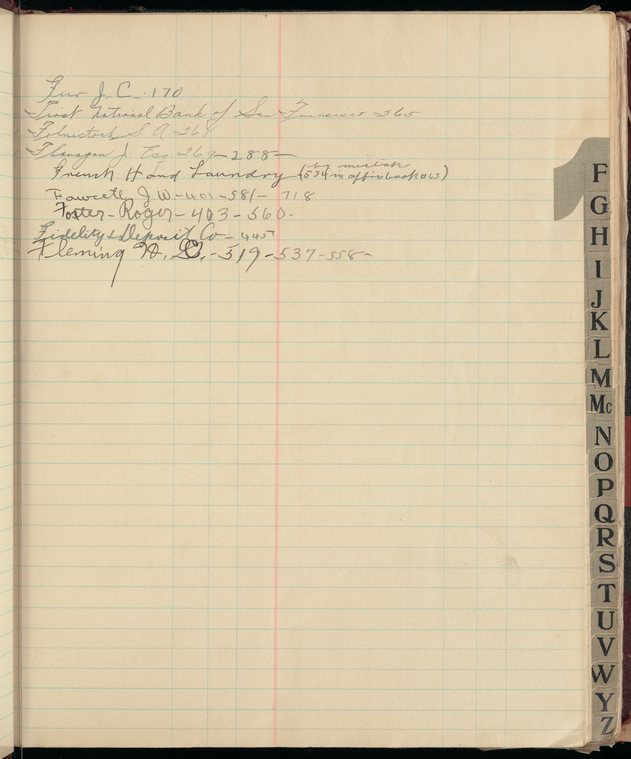 J. C. 170
First National Bank of San Francisco 265
S A 268
Flanagan J. Esq 269-288-
French Hand Laundry (534 in office book #3)
by mistake
Fawcett J. W-401-581-718
Foster-Roger-403-560-
Fidelity & Deposit Co-445
Fleming -519-537-558-
F
G
H
I
J
K
L
M
Mc
N
O
P
Q
R
S
T
U
V
W
Y
Z